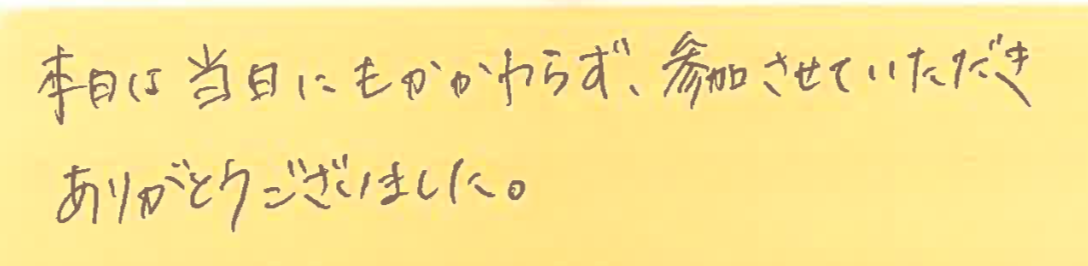 本日は当日にもかかわらず、参加させていただき
ありがとうございました。